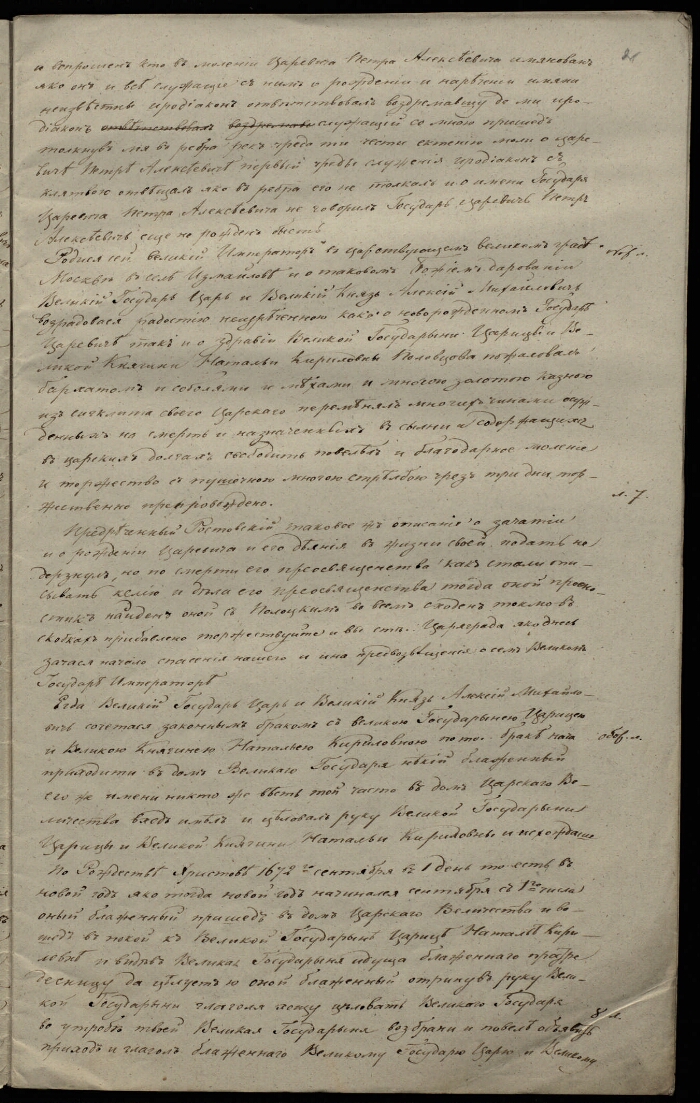 и вопрошен кто въ молении Царевича Петра Алексѣевича имянован
яко он и всѣ служащие съ нимъ о рождении и нарѣчении имяни
неизвѣстны иродіаконъ отвѣтствовалъ воздремавшу де ми иро-
діаконъ отвѣтствовалъ воздремавш служащій со мною пришедъ
толкнувъ мя въ ребра рекъ чреда ти чести ектению моли о Царе-
вичѣ Петрѣ Алексѣевичѣ первый чреды служения иродіаконъ съ
клятвою отвѣщалъ яко въ ребра его не толкалъ и о имени Государя
Царевича Петра Алексѣевича не говорилъ Государь Царевичь Петръ
Алексѣевичь еще не рожденъ бысть
Родися сей великій Императоръ въ царствующемъ великомъ градѣ обор. л.
Москвѣ в селѣ Измайловѣ и о таковомъ Божіемъ даровании
Великій Государь Царь и Великій Князь Алексій Михайловичь
возрадовася радостию неизрѣченною какъ о новорожденномъ Государѣ
Царевичѣ такъ и о здравіи Великой Государыни Царицы и Ве-
ликой Княгини Натальи Кириловны Половцова пожаловалъ
бархатомъ и соболями и мѣхами и многою золотою казною
изъ синклита своего Царскаго перемѣнялъ многихъ чинами осуж-
денныхъ на смерть и назначенныхъ въ сылки и содержащимъ
въ царскимъ долгамъ свободить повелѣ и благодарное моление
и торжество съ пушечною многою стрѣлбою чрезъ три дни тор-
жественно препровождено. л. 7.
Предрѣченный Ростовскій таковое жъ описаніе о зачатіи
и о рождении Царевича и его дѣянія въ жизни своей подать не
дерзнулъ, но по смерти его преосвященства какъ стали опи-
сывать келию и дѣла его преосвященства тогда оной прогно-
стикъ найденъ оной съ Полоцкимъ во всемъ сходенъ токмо въ
скобкахъ прибавлено торжествуйте и вы есть.. Царяграда яко днесь
зачася начало спасения нашего и ина превозвещения о семъ Великомъ
Государѣ Императорѣ
Егда Великій Государь Царь и Великій Князь Алексій Михайло-
вичь сочетася законнымъ бракомъ съ великою Государынею Царицею
и Великою Княгинею Наталиею Кириловною по томъ бракѣ нача обор. л.
приходити въ домъ Великаго Государя нѣкій блаженный
его же имени никто же вѣсть той часто въ домъ Царскаго Ве-
личества входъ имѣлъ и цѣловалъ руку Великой Государыни
Царицы и Великой Княгини Натальи Кириловны и исхождаше
По Рождествѣ Христовѣ 1672го сентября въ 1 день то есть въ
новой годъ яко тогда новой годъ начинался сентября съ 1го числа
оный блаженный пришедъ въ домъ Царскаго Величества и во-
шедъ въ покой къ Великой Государынѣ Царицѣ Натальѣ Кири-
ловнѣ и видѣвъ Великая Государыня идуща блаженнаго простре
десницу да цѣлуетъ ю оной блаженный отринувъ руку Вели-
кой Государыни глаголя хощу цѣловать Великаго Государя
во утробѣ твоей Великая Государыня возбрани и повелѣ объявить 8 л.
приходъ и глаголъ блаженнаго Великому Государю Царю и Великому